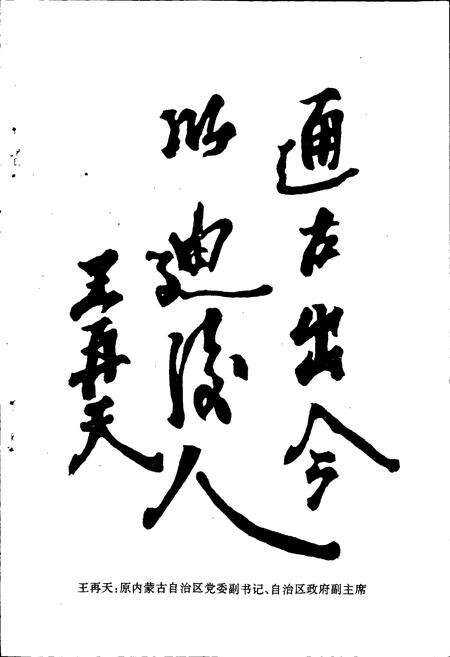 通古出今
以迪后人
王再天
王再天：原内蒙古自治区党委副书记、自治区政府副主席